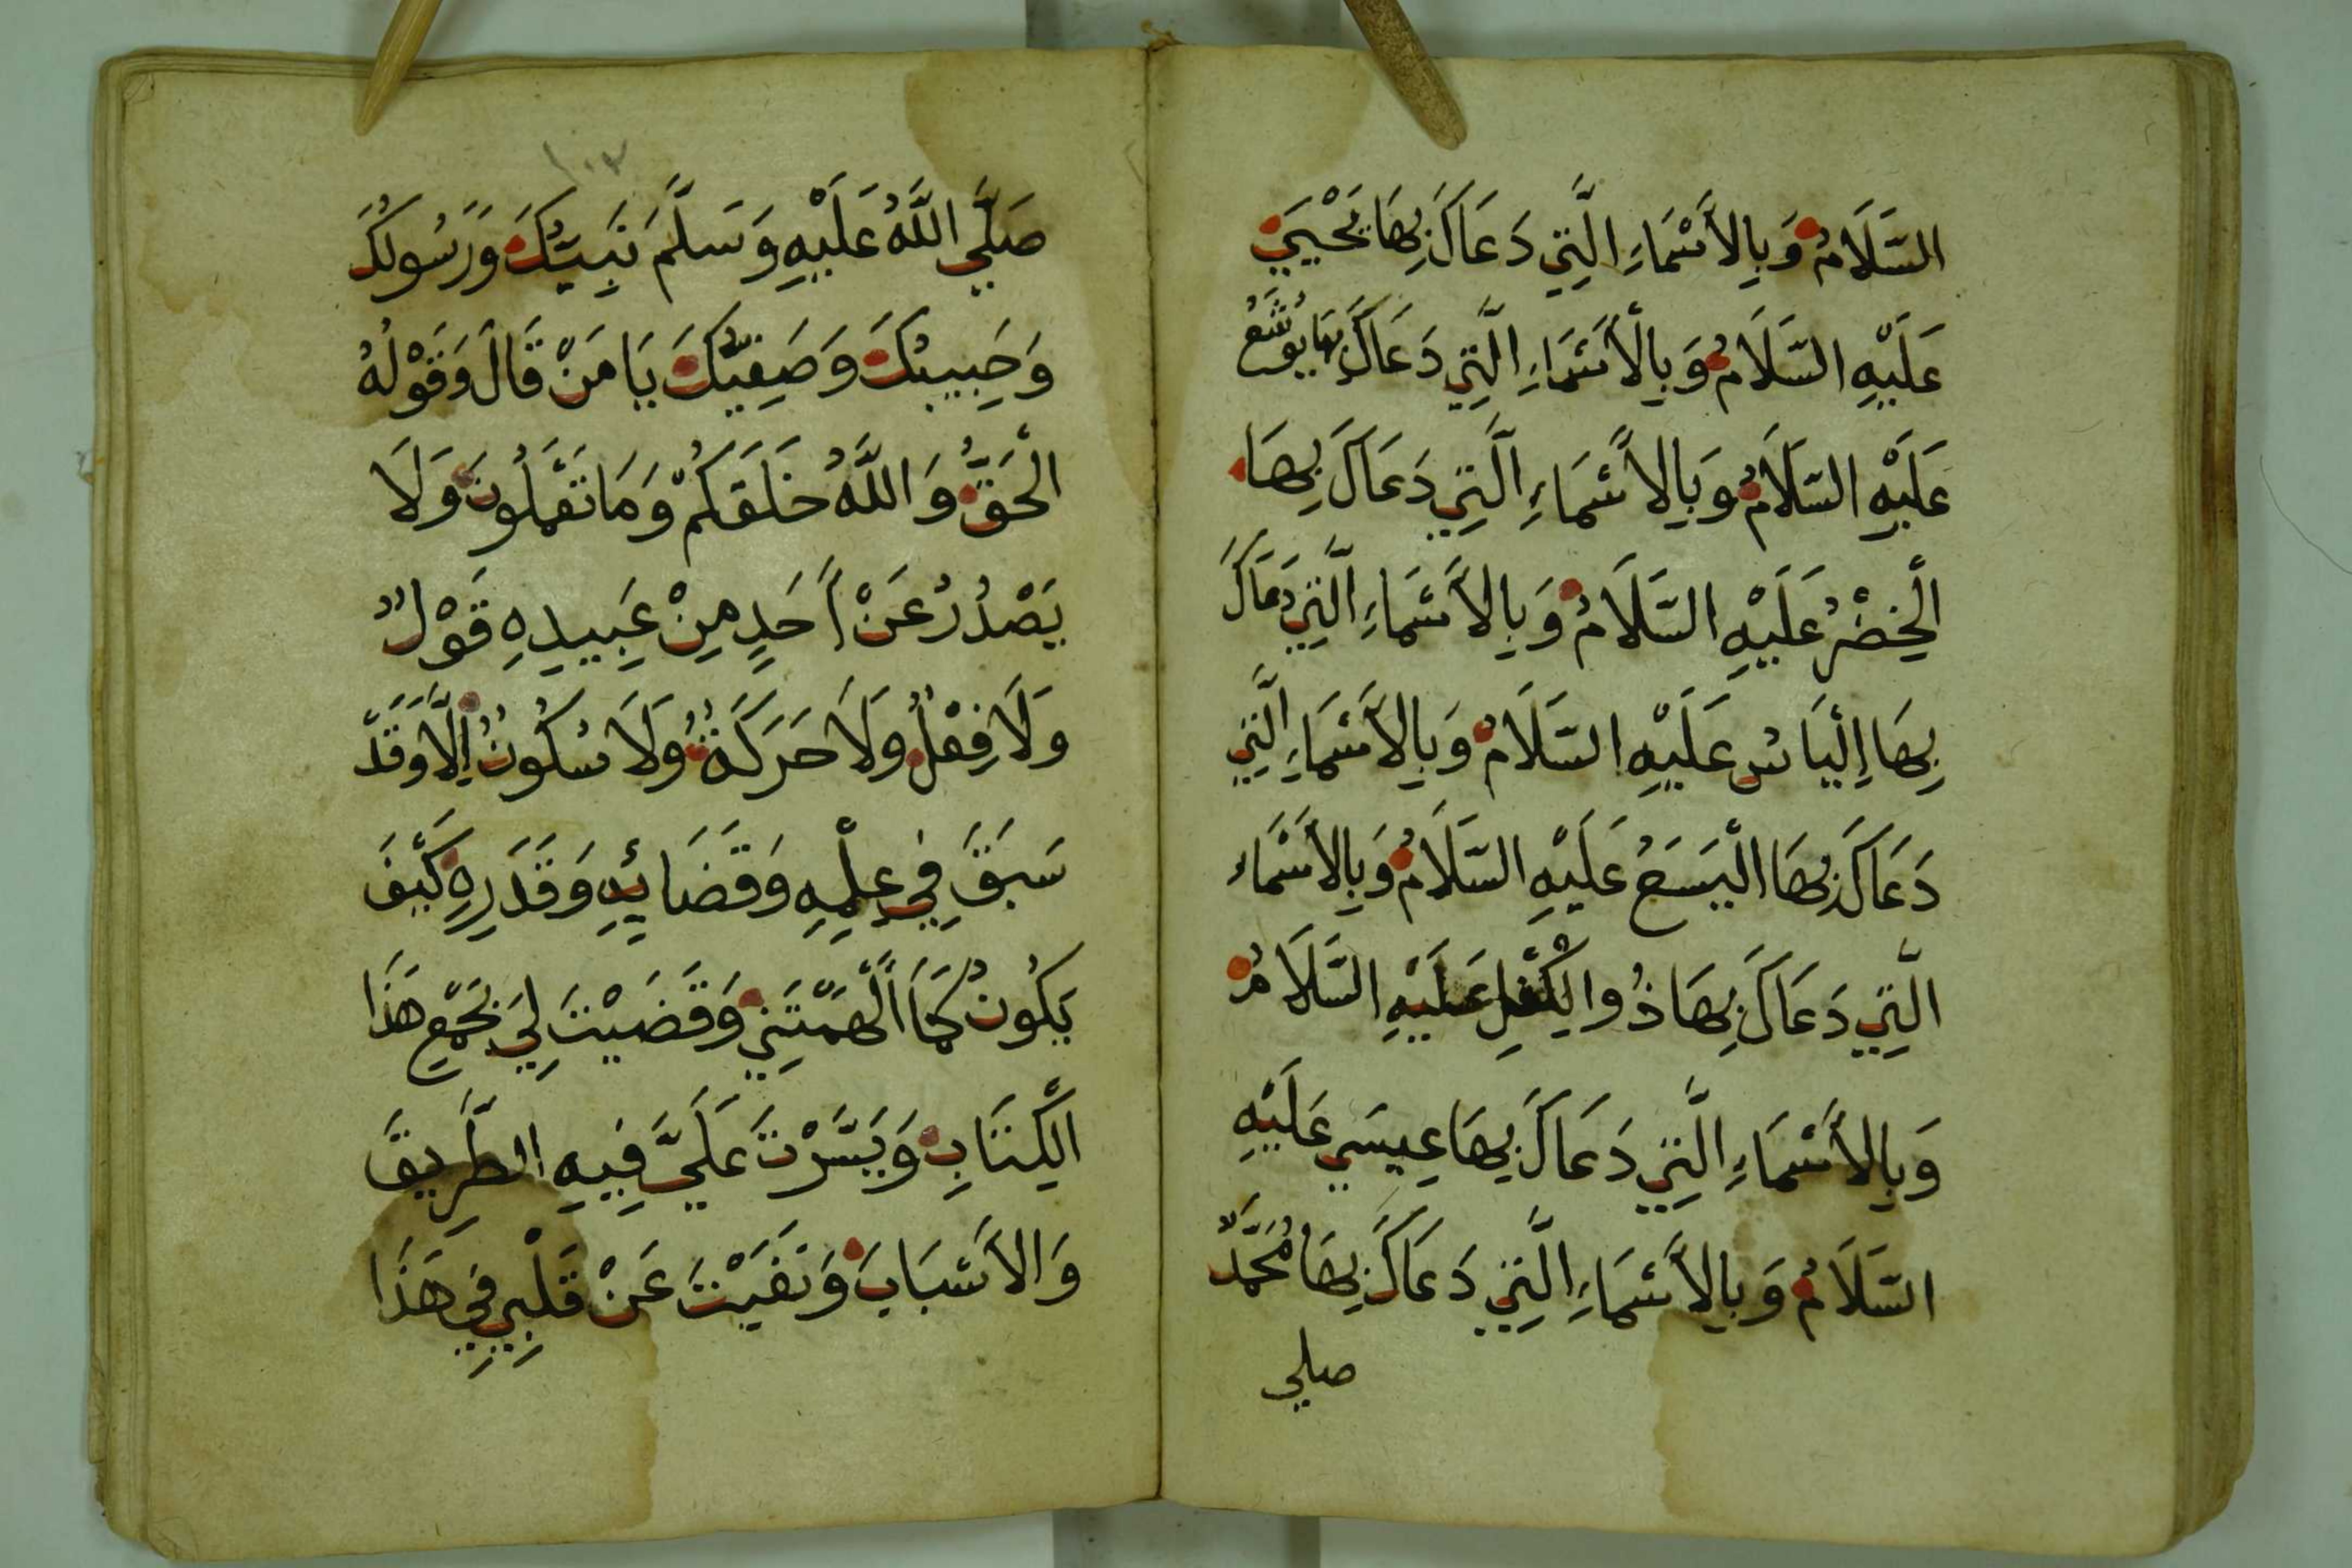 السَّلَامُ وَبِالأَسْمَاءِ الَّتِي دَعَاكَ بِهَا يَحْيَيَ
عَلَيْهِ السَّلَامُ وَبِالْأَسْمَاءِ الَّتِي دَعَاكَ بِهَا يُوشَعُ
عَلَيْهِ السَّلَامُ وَبِالأَسْمَاءِ الَّتِي دَعَاكَ بِهَا
الْخِضْرُ عَلَيْهِ السَّلَامُ وَبِالأَسْمَاءِ الَّتِي دَعَاكَ
بِهَا إِلْيَاسُ عَلَيْهِ السَّلَامُ وَبِالأَسْمَاءِ الَّتِي
دَعَاكَ بِهَا الْيَسَعُ عَلَيْهِ السَّلَامُ وَبِالأَسْمَاء
الَّتِي دَعَاكَ بِهَا ذُوالْكِفْلِ عَلَيْهِ السَّلَامُ
وَبِالأَسْمَاءِ الَّتِي دَعَاكَ بِهَا عِيسَي عَلَيْهِ
السَّلَامُ وَبِالأَسْمَاءِ الَّتِي دَعَاكَ بِهَا مُحَمَّدٌ
صلي
١٠٣
صَلَّي اللَّهُ عَلَيْهِ وَسَلَّمَ نَبِيُّكَ وَرَسُولُكَ
وَحَبِيبُكَ وَصَفِيُّكَ يَا مَنْ قَالَ وَقَوْلُهُ
الْحَقُّ وَاللَّهُ خَلَقَكُمْ وَمَا تَعْمَلُونَ وَلَا
يَصْدُرُ عَنْ أَحَدٍ مِنْ عَبِيدِهِ قَوْلٌ
وَلَا فِعْلٌ وَلَا حَرَكَةٌ وَلَا سُكُونٌ إِلَّا وَقَدْ
سَبَقَ فِي عِلْمِهِ وَقَضَائِهِ وَقَدَرِهِ كَيْفَ
يَكُونُ كَمَا أَلْهَمْتَنِي وَقَضَيْتَ لِي بِجَمْعِ هَذَا
الْكِتَابِ وَيَسَّرْتَ عَلَيَّ فِيهِ الطَّرِيقَ
وَالأَسْبَابَ وَنَفَيْتَ عَنْ قَلْبِي فِي هَذَا